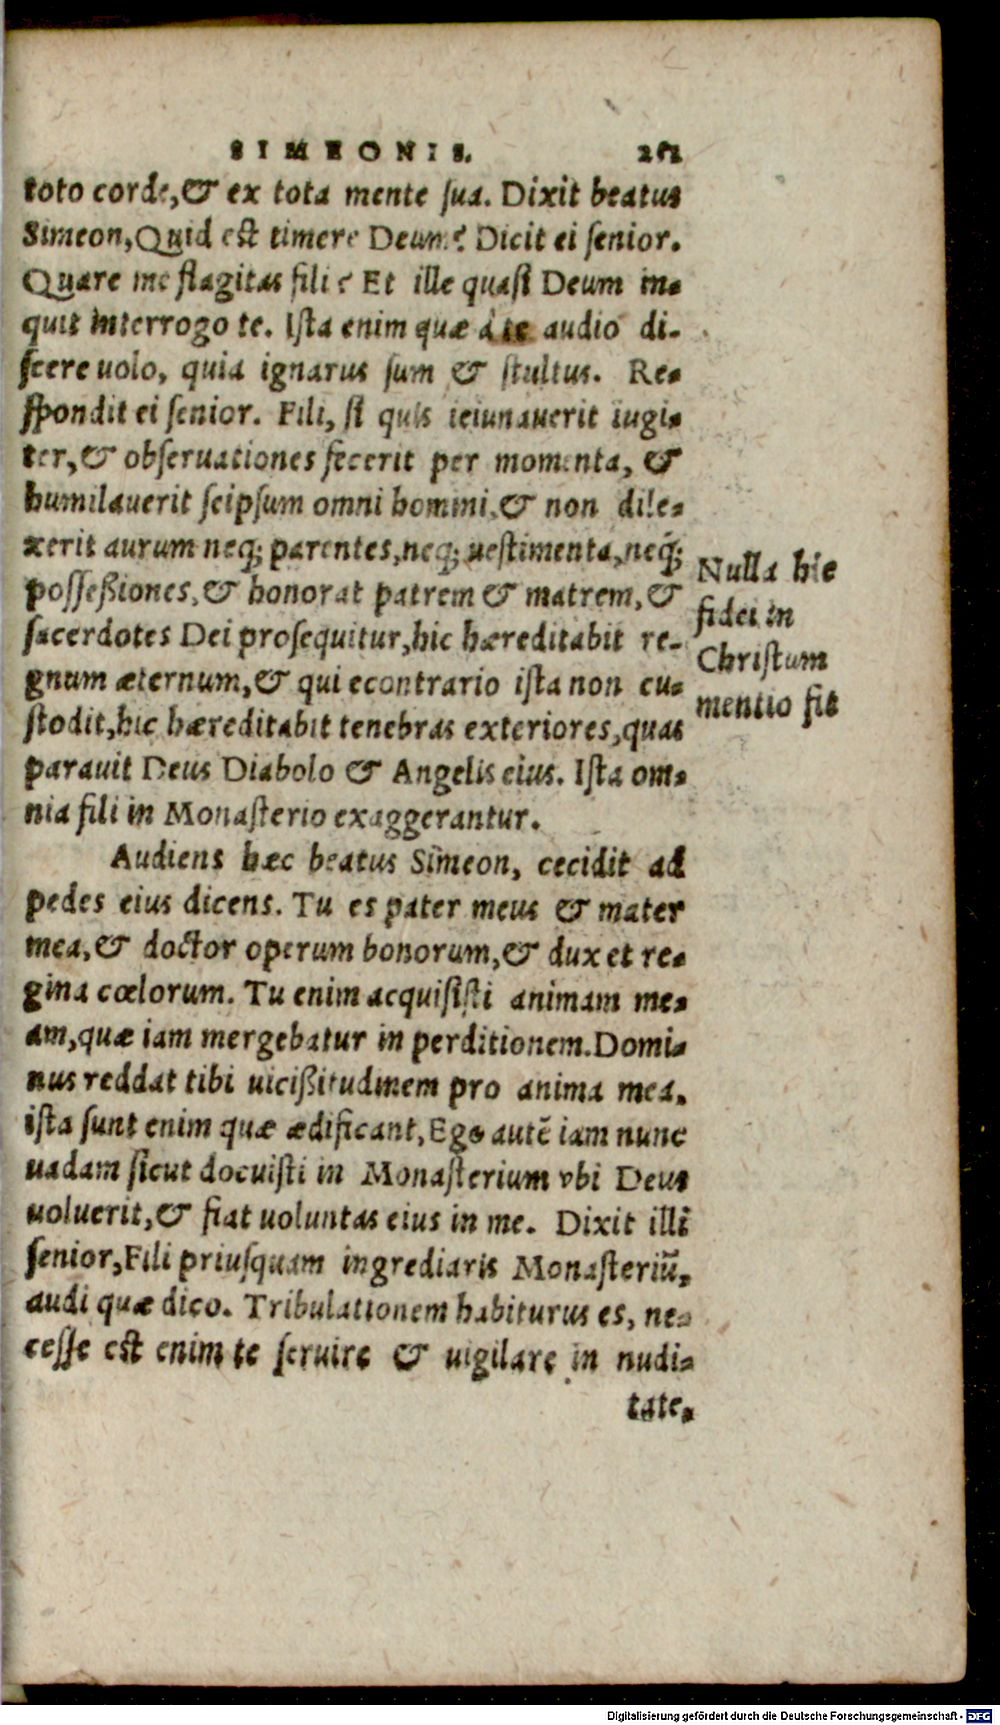 SIMEONIS. 251
toto corde, & ex tota mente sua. Dixit beatus
Simeon, Quid est timere Deum? Dicit ei senior.
Quare me flagitas fili? Et ille quasi Deum in-
quit interrogo te. Ista enim quæ à te audio di-
scere uolo, quia ignarus sum & stultus. Re-
spondit ei senior. Fili, si quis ieiunauerit iugi-
ter, & obseruationes fecerit per momenta, &
humilauerit seipsum omni homini, & non dile-
xerit aurum neq; parentes, neq; uestimenta, neq;
posseßiones, & honorat patrem & matrem, &
sacerdotes Dei prosequitur, hic hæreditabit re-
gnum æternum, & qui econtrario ista non cu-
stodit, hic hæreditabit tenebras exteriores, quas
parauit Deus Diabolo & Angelis eius. Ista om-
nia fili in Monasterio exaggerantur.
Nulla hic
fidei in
Christum
mentio fit
Audiens hæc beatus Simeon, cecidit ad
pedes eius dicens. Tu es pater meus & mater
mea, & doctor operum bonorum, & dux et re-
gina cœlorum. Tu enim acquisisti animam me-
am, quæ iam mergebatur in perditionem. Domi-
nus reddat tibi uicißitudinem pro anima mea.
ista sunt enim quæ ædificant, Ego autẽ iam nunc
uadam sicut docuisti in Monasterium vbi Deus
uoluerit, & fiat uoluntas eius in me. Dixit illi
senior, Fili priusquam ingrediaris Monasteriũ,
audi quæ dico. Tribulationem habiturus es, ne-
cesse est enim te seruire & uigilare in nudi-
tate.
Digitalisierung gefördert durch die Deutsche Forschungsgemeinschaft - DFG